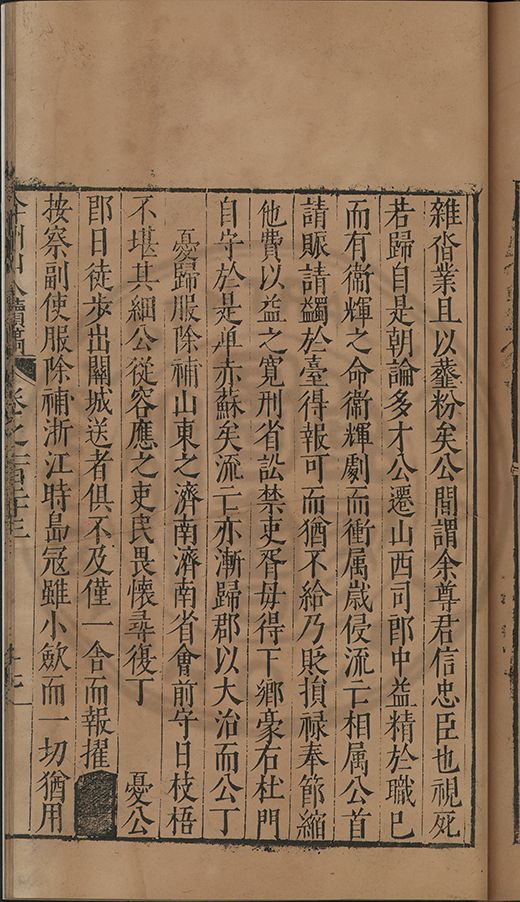 雜沓業且以虀粉矣公間謂余尊君信忠臣也視死
若歸自是朝論多才公遷山西司郎中益精於職已
而有衞輝之命衞輝劇而衝属歳侵流亡相属公首
請賑請蠲於臺得報可而猶不給乃貶損禄奉節縮
他費以益之寛刑省訟禁吏胥毋得下鄉豪右杜門
自守於是單赤蘇矣流亡亦漸歸郡以大治而公丁
憂歸服除補山東之濟南濟南省會前守日枝梧
不堪其細公從容應之吏民畏懷尋復丁 憂公
卽日徒步出闗城送者俱不及僅一舎而報擢
按察副使服除補浙江時島冦雖小歛而一切猶用
弇州山人續稿 卷之一百二十三